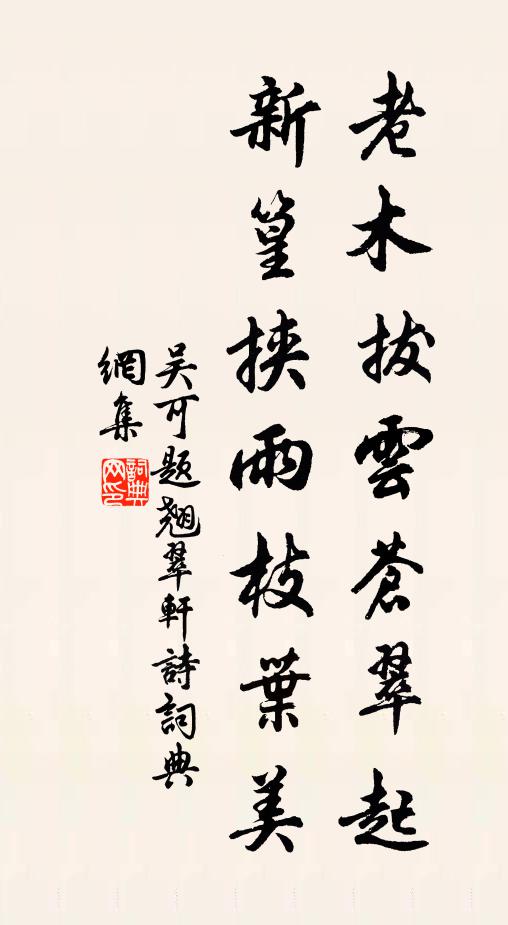 老木拔雲蒼翠起
新篁挟雨枝葉美
吴可题翘翠軒詩詞典
網集
詞典
网印